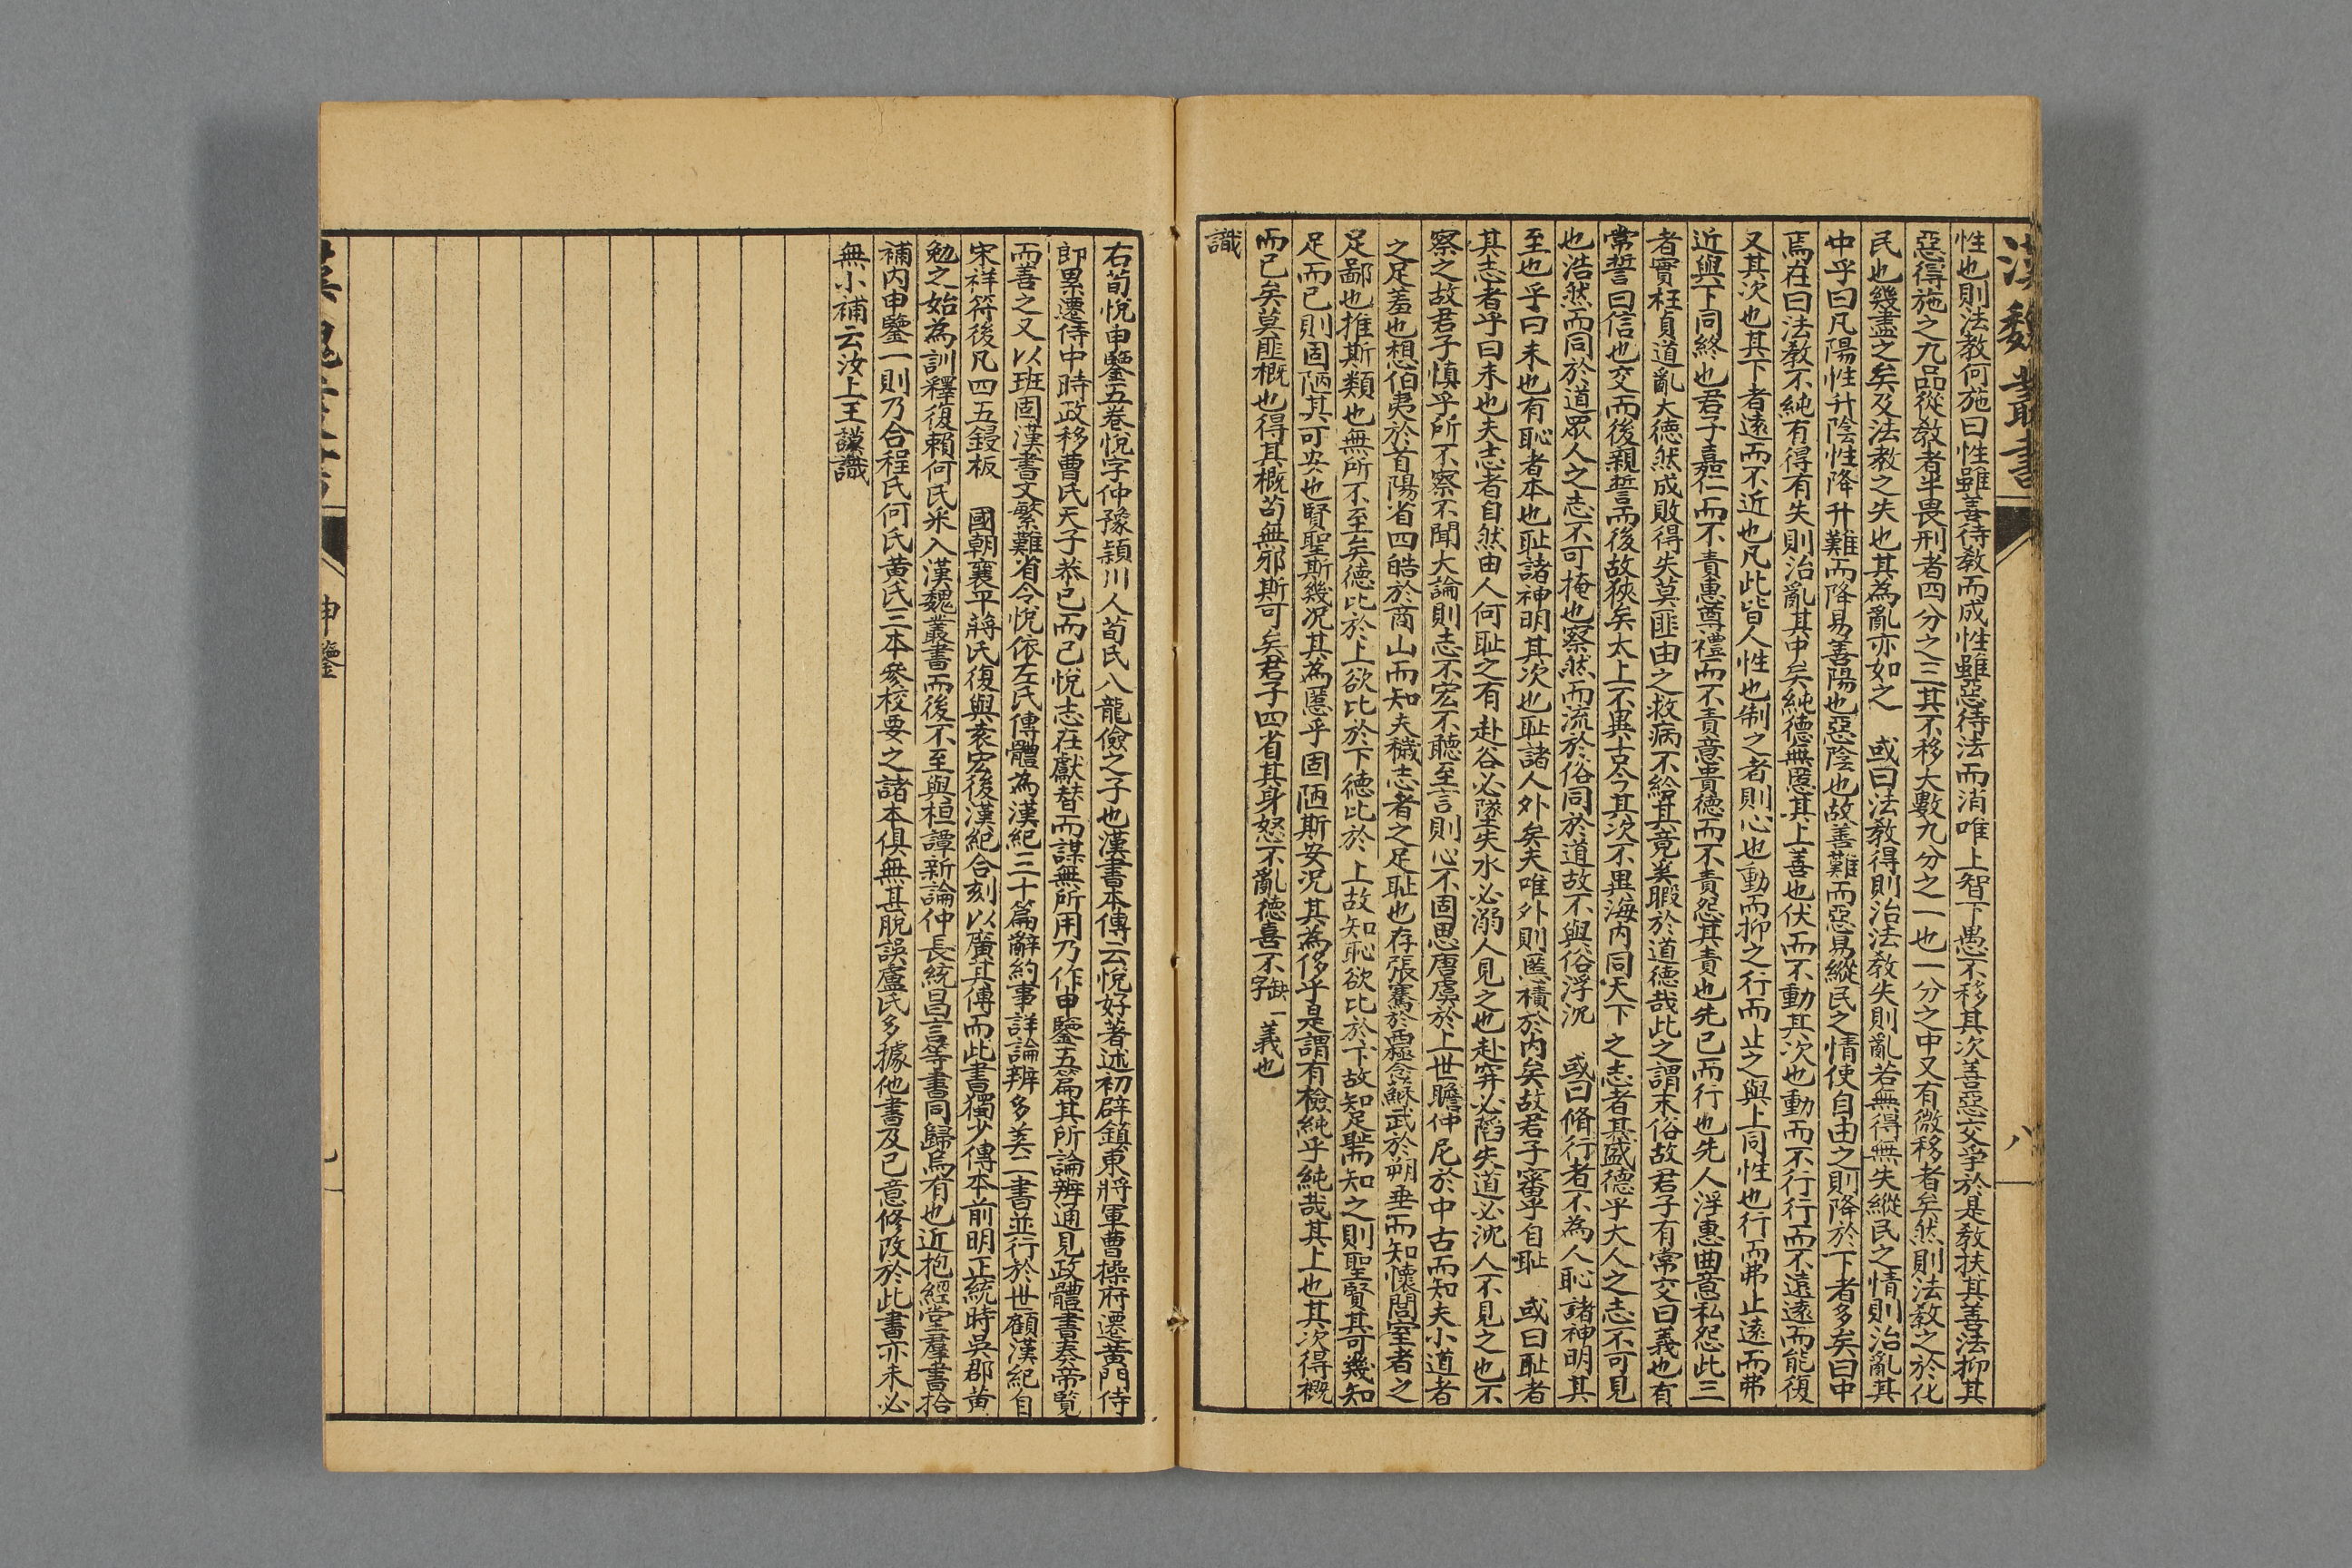 漢魏叢書
八
性也則法教何施曰性雖善待教而成性雖惡待法而消唯上智下愚不移其次善惡交爭於是教扶其善法抑其
惡得施之九品從教者半畏刑者四分之三其不移大數九分之一也一分之中又有微移者矣然則法教之於化
民也幾盡之矣及法教之失也其為亂亦如之　或曰法教得則治法教失則亂若無得無失縱民之情則治亂其
中乎曰凡陽性升陰性降升難而降易善陽也惡陰也故善難而惡易縱民之情使自由之則降於下者多矣曰中
焉在曰法教不純有得有失則治亂其中矣純德無慝其上善也伏而不動其次也動而不行行而不遠遠而能復
又其次也其下者遠而不近也凡此皆人性也制之者則心也動而抑之行而止之與上同性也行而弗止遠而弗
近與下同終也君子嘉仁而不責惠尊禮而不責意貴德而不責怨其責也先己而行也先人淫惠曲意私怨此三
者實枉貞道亂大德然成敗得失莫匪由之救病不給其竟奚暇於道德哉此之謂末俗故君子有常交曰義也有
常誓曰信也交而後親誓而後故狹矣太上不異古今其次不異海內同天下之志者其盛德乎大人之志不可見
也浩然而同於道眾人之志不可掩也察然而流於俗同於道故不與俗浮沉　或曰脩行者不為人恥諸神明其
至也乎曰未也有恥者本也恥諸神明其次也恥諸人外矣夫唯外則慝積於內矣故君子審乎自恥　或曰恥者
其志者乎曰未也夫志者自然由人何恥之有赴谷必墜失水必溺人見之也赴穽必陷失道必沈人不見之也不
察之故君子慎乎所不察不聞大論則志不宏不聽至言則心不固思唐虞於上世瞻仲尼於中古而知夫小道者
之足羞也想伯夷於首陽省四皓於商山而知夫穢志者之足恥也存張騫於西極念蘇武於朔垂而知懷閭室者之
足鄙也推斯類也無所不至矣德比於上欲比於下德比於上故知恥欲比於下故知足恥而知之則聖賢其可幾知
足而已則固陋其可安也賢聖斯幾況其為慝乎固陋斯安況其為侈乎是謂有檢純乎純哉其上也其次得概
而已矣莫匪概也得其概苟無邪斯可矣君子四省其身怒不亂德喜不缺字一義也
識
右荀悅申鑒五卷悅字仲豫潁川人荀氏八龍儉之子也漢書本傳云悅好著述初辟鎮東將軍曹操府遷黃門侍
郎累遷侍中時政移曹氏天子恭己而已悅志在獻替而謀無所用乃作申鑒五篇其所論辨通見政體書奏帝覽
而善之又以班固漢書文繁難省令悅依左氏傳體為漢紀三十篇辭約事詳論辨多美二書並行於世顧漢紀自
宋祥符後凡四五鋟板　國朝襄平蔣氏復與袁宏後漢紀合刻以廣其傳而此書獨少傳本前明正統時吳郡黃
勉之始為訓釋復賴何氏采入漢魏叢書而後不至與桓譚新論仲長統昌言等書同歸烏有也近抱經堂羣書拾
補內申鑒一則乃合程氏何氏黃氏三本參校要之諸本俱無甚脫誤盧氏多據他書及己意修改於此書亦未必
無小補云汝上王謨識
申鑒